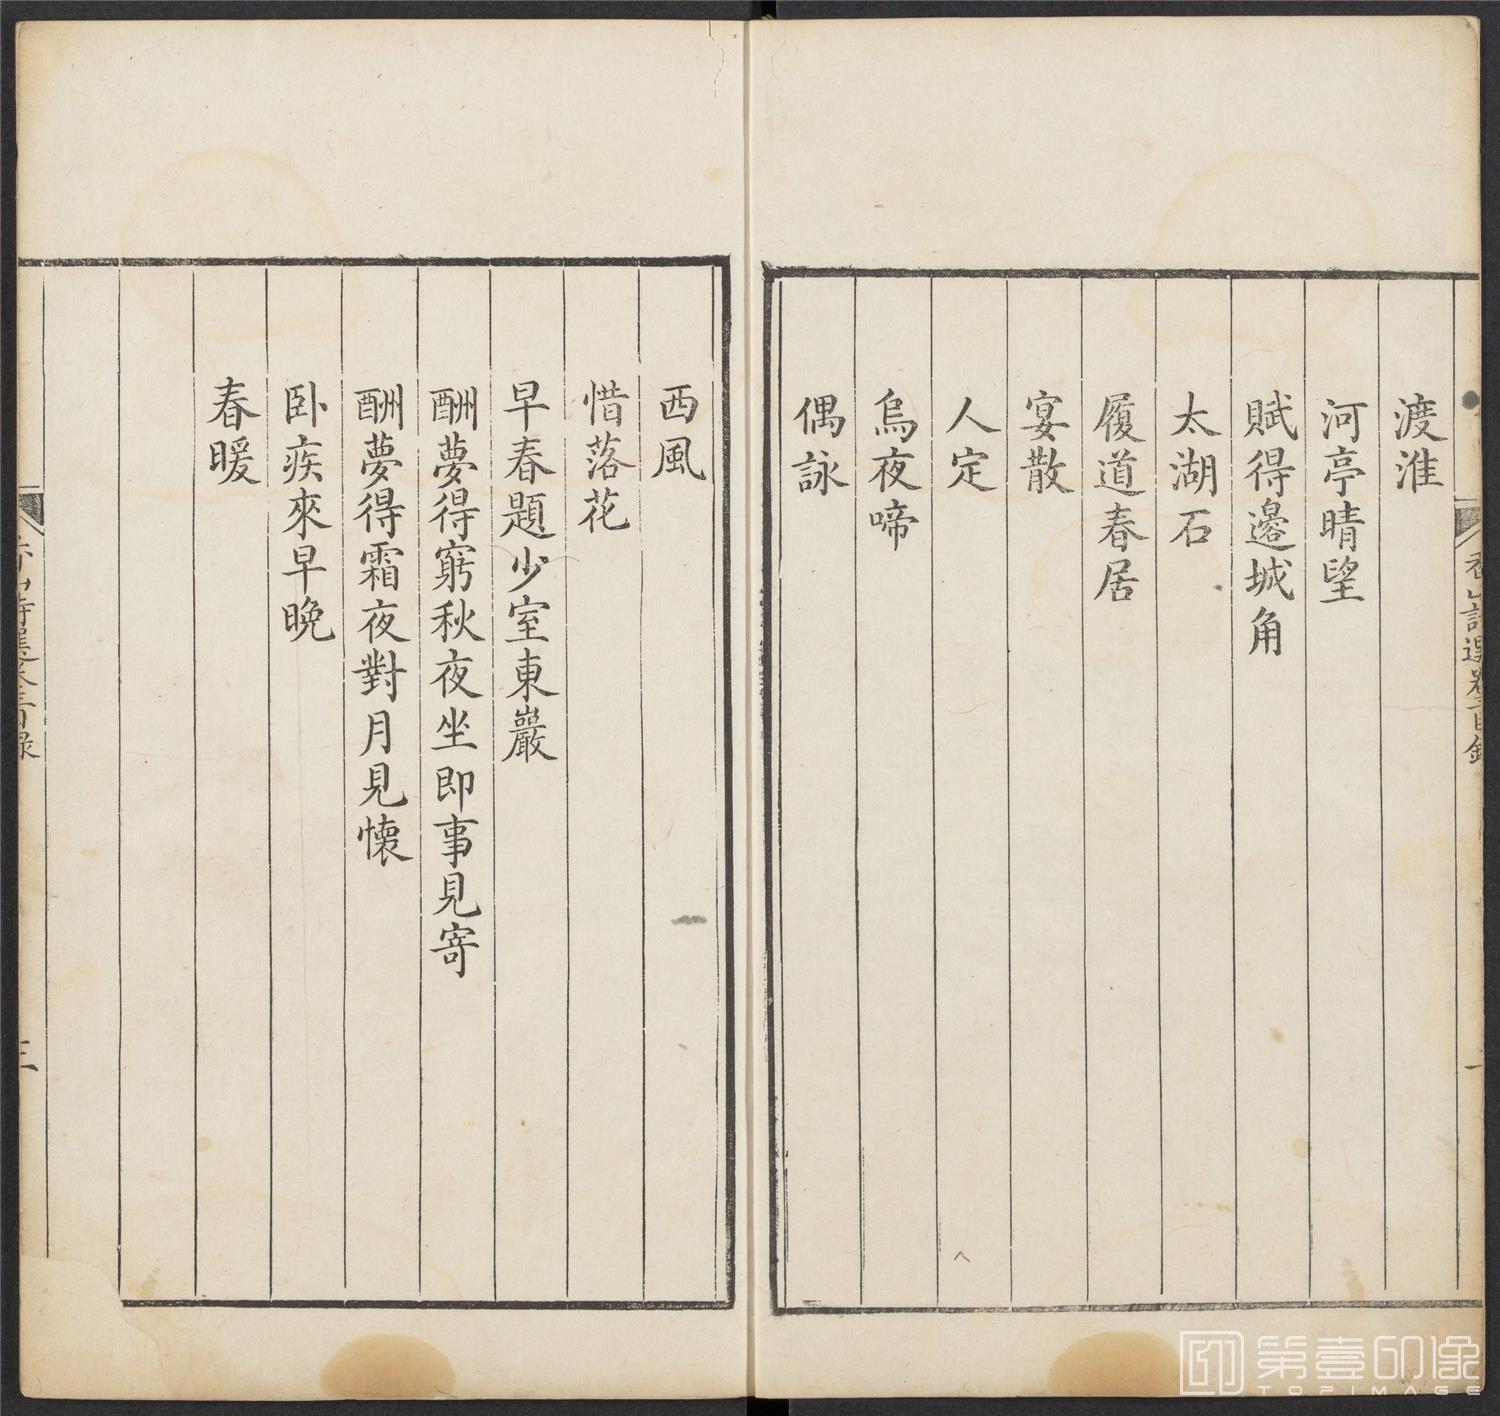 渡淮
河亭晴望
賦得邊城角
太湖石
履道春居
宴散
人定
烏夜啼
偶詠
西風
惜落花
早春題少室東巖
酬夢得窮秋夜坐即事見寄
酬夢得霜夜對月見懷
卧疾來早晚
春暖
香山詩選卷三目錄
三
第壹印像
TOPIMAGE